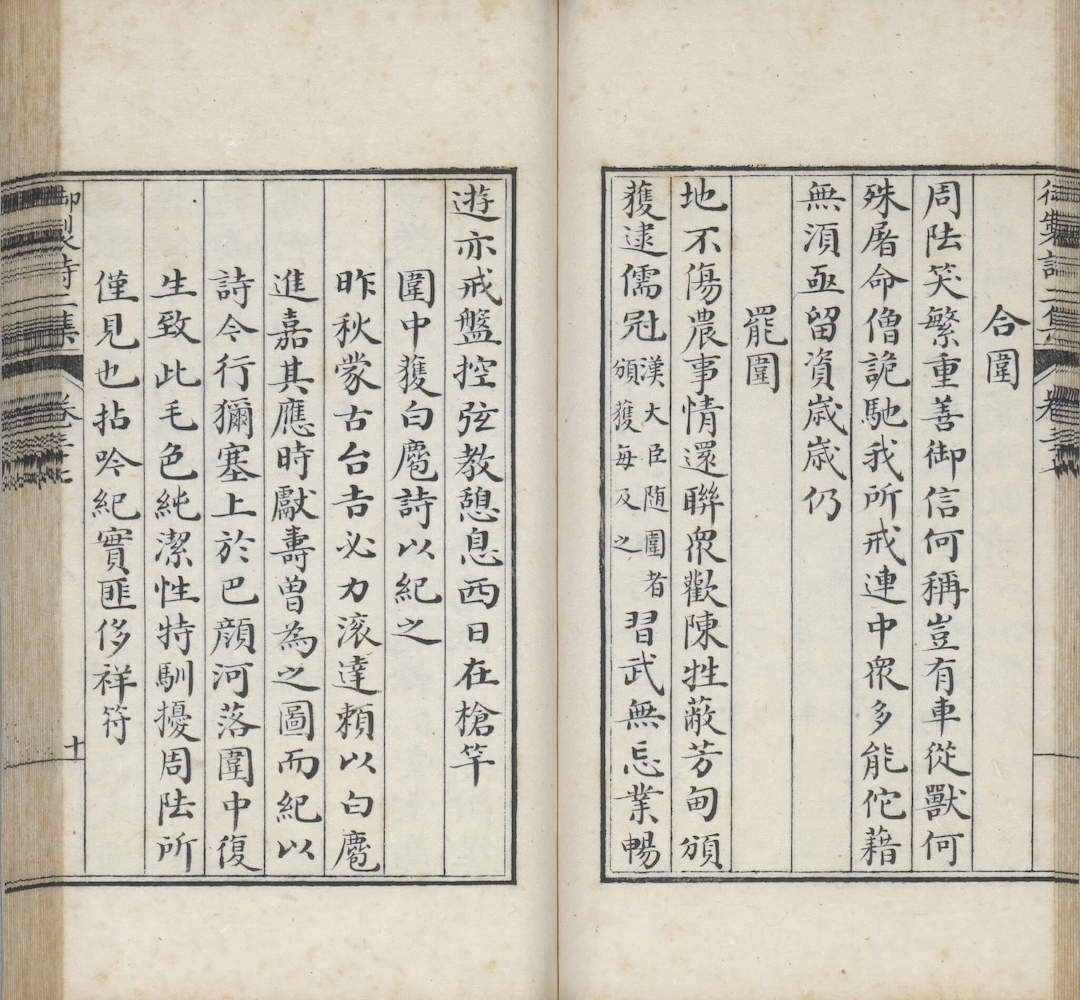 御製詩二集 卷
合圍
周阹笑繁重善御信何稱豈有車從獸何
殊屠命僧詭馳我所戒連中衆多能佗藉
無湏亟留資歳歳仍
罷圍
地不傷農事情還聯衆歡陳牲蔽芳甸頒
獲逮儒冠漢大臣随圍者頒獲每及之習武無忘業暢
遊亦戒盤控弦教憩息西日在槍竿
圍中獲白麅詩以紀之
昨秋蒙古台吉必力滚達頼以白麅
進嘉其應時獻壽曾為之圖而紀以
詩今行獮塞上於巴顔河落圍中復
生致此毛色純潔性特馴擾周阹所
僅見也拈吟紀實匪侈祥符
御製詩二集 卷 十